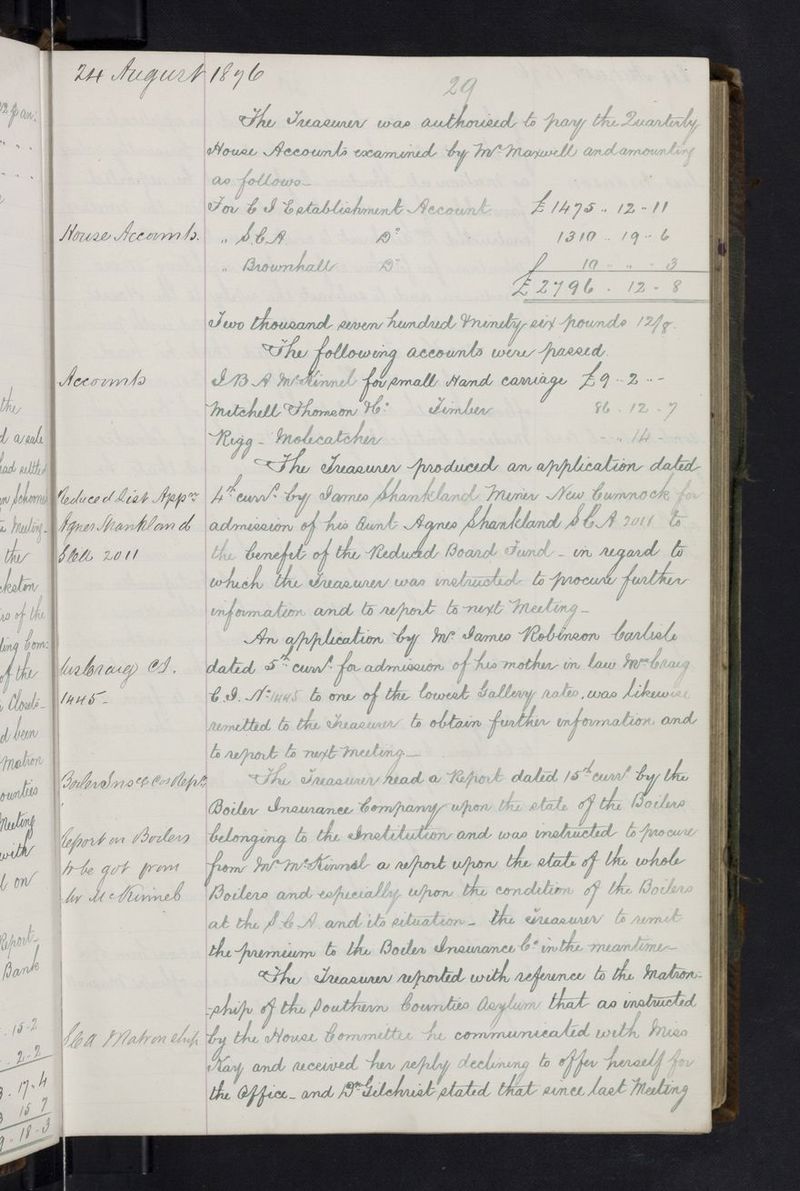 24 August 1876
29
The Treasurer was authorised to pay the Quarterly
House Accounts examined by Mr. Maxwell and amounting
as follows-
For C I Establishment Account £1475 .. 12 - 11
House Accounts.
" S.C.A Do 1310 .. 19 .. 6
" Brownhall Do 10 .. " - 3
£2796 . 12 - 8
Two thousand seven hundred & ninety six pounds 12/8.
The following accounts were passed
Accounts
I B A McKinnel for small Hand carriage £9 .. 2 .. -
Mitchell Thomson & Co. Timber 86 . 12 . 7
Rigg - Molecatcher .. 14 -
The Treasurer produced an application dated
Reduced List Appn
4th curt. by James Shankland Miner New Cumnock for
Agnes Shankland
admission of his Aunt Agnes Shankland S C A 2011 to
SCA 2011
the benefit of the Reduced Board Fund - in regard to
which the Treasurer was instructed to procure further
information and to report to next Meeting -
An application by Mr. James Robinson Carlisle
Mrs Craig C I.
dated 5th curt. for admission of his mother in law Mrs Craig
1445 -
C.I. No. 1445 to one of the lowest Gallery rates, was likewise
remitted to the Treasurer to obtain further information and
to report to next Meeting -
Boiler Insce Cos Rept.
The Treasurer read a Report dated 15th curt. by the
Boiler Insurance Company upon the state of the Boilers
Report on Boilers
belonging to the Institution and was instructed to procure
to be got from
from Mr McKinnel a report upon the state of the whole
Mr McKinnel
Boilers and especially upon the condition of the Boilers
at the S.C.A. and its situation - the Treasurer to remit
the premium to the Boiler Insurance Co. in the meantime -
The Treasurer reported with reference to the Matron-
-ship of the Southern Counties Asylum that as instructed
SCA Matronship
by the House Committee he communicated with Miss
Kay and received her reply declining to offer herself for
the Office - and Dr Gilchrist stated that since last Meeting
the
d a sale
had settled
Meeting -
the
of the
ling Com:
of the
Closets -
d been
Matron
ounties
Meeting
with
on
Report -
Bank
. 15 - 2
. 2 - 2
. 17 - 4
15 7
9 - 18 - 3